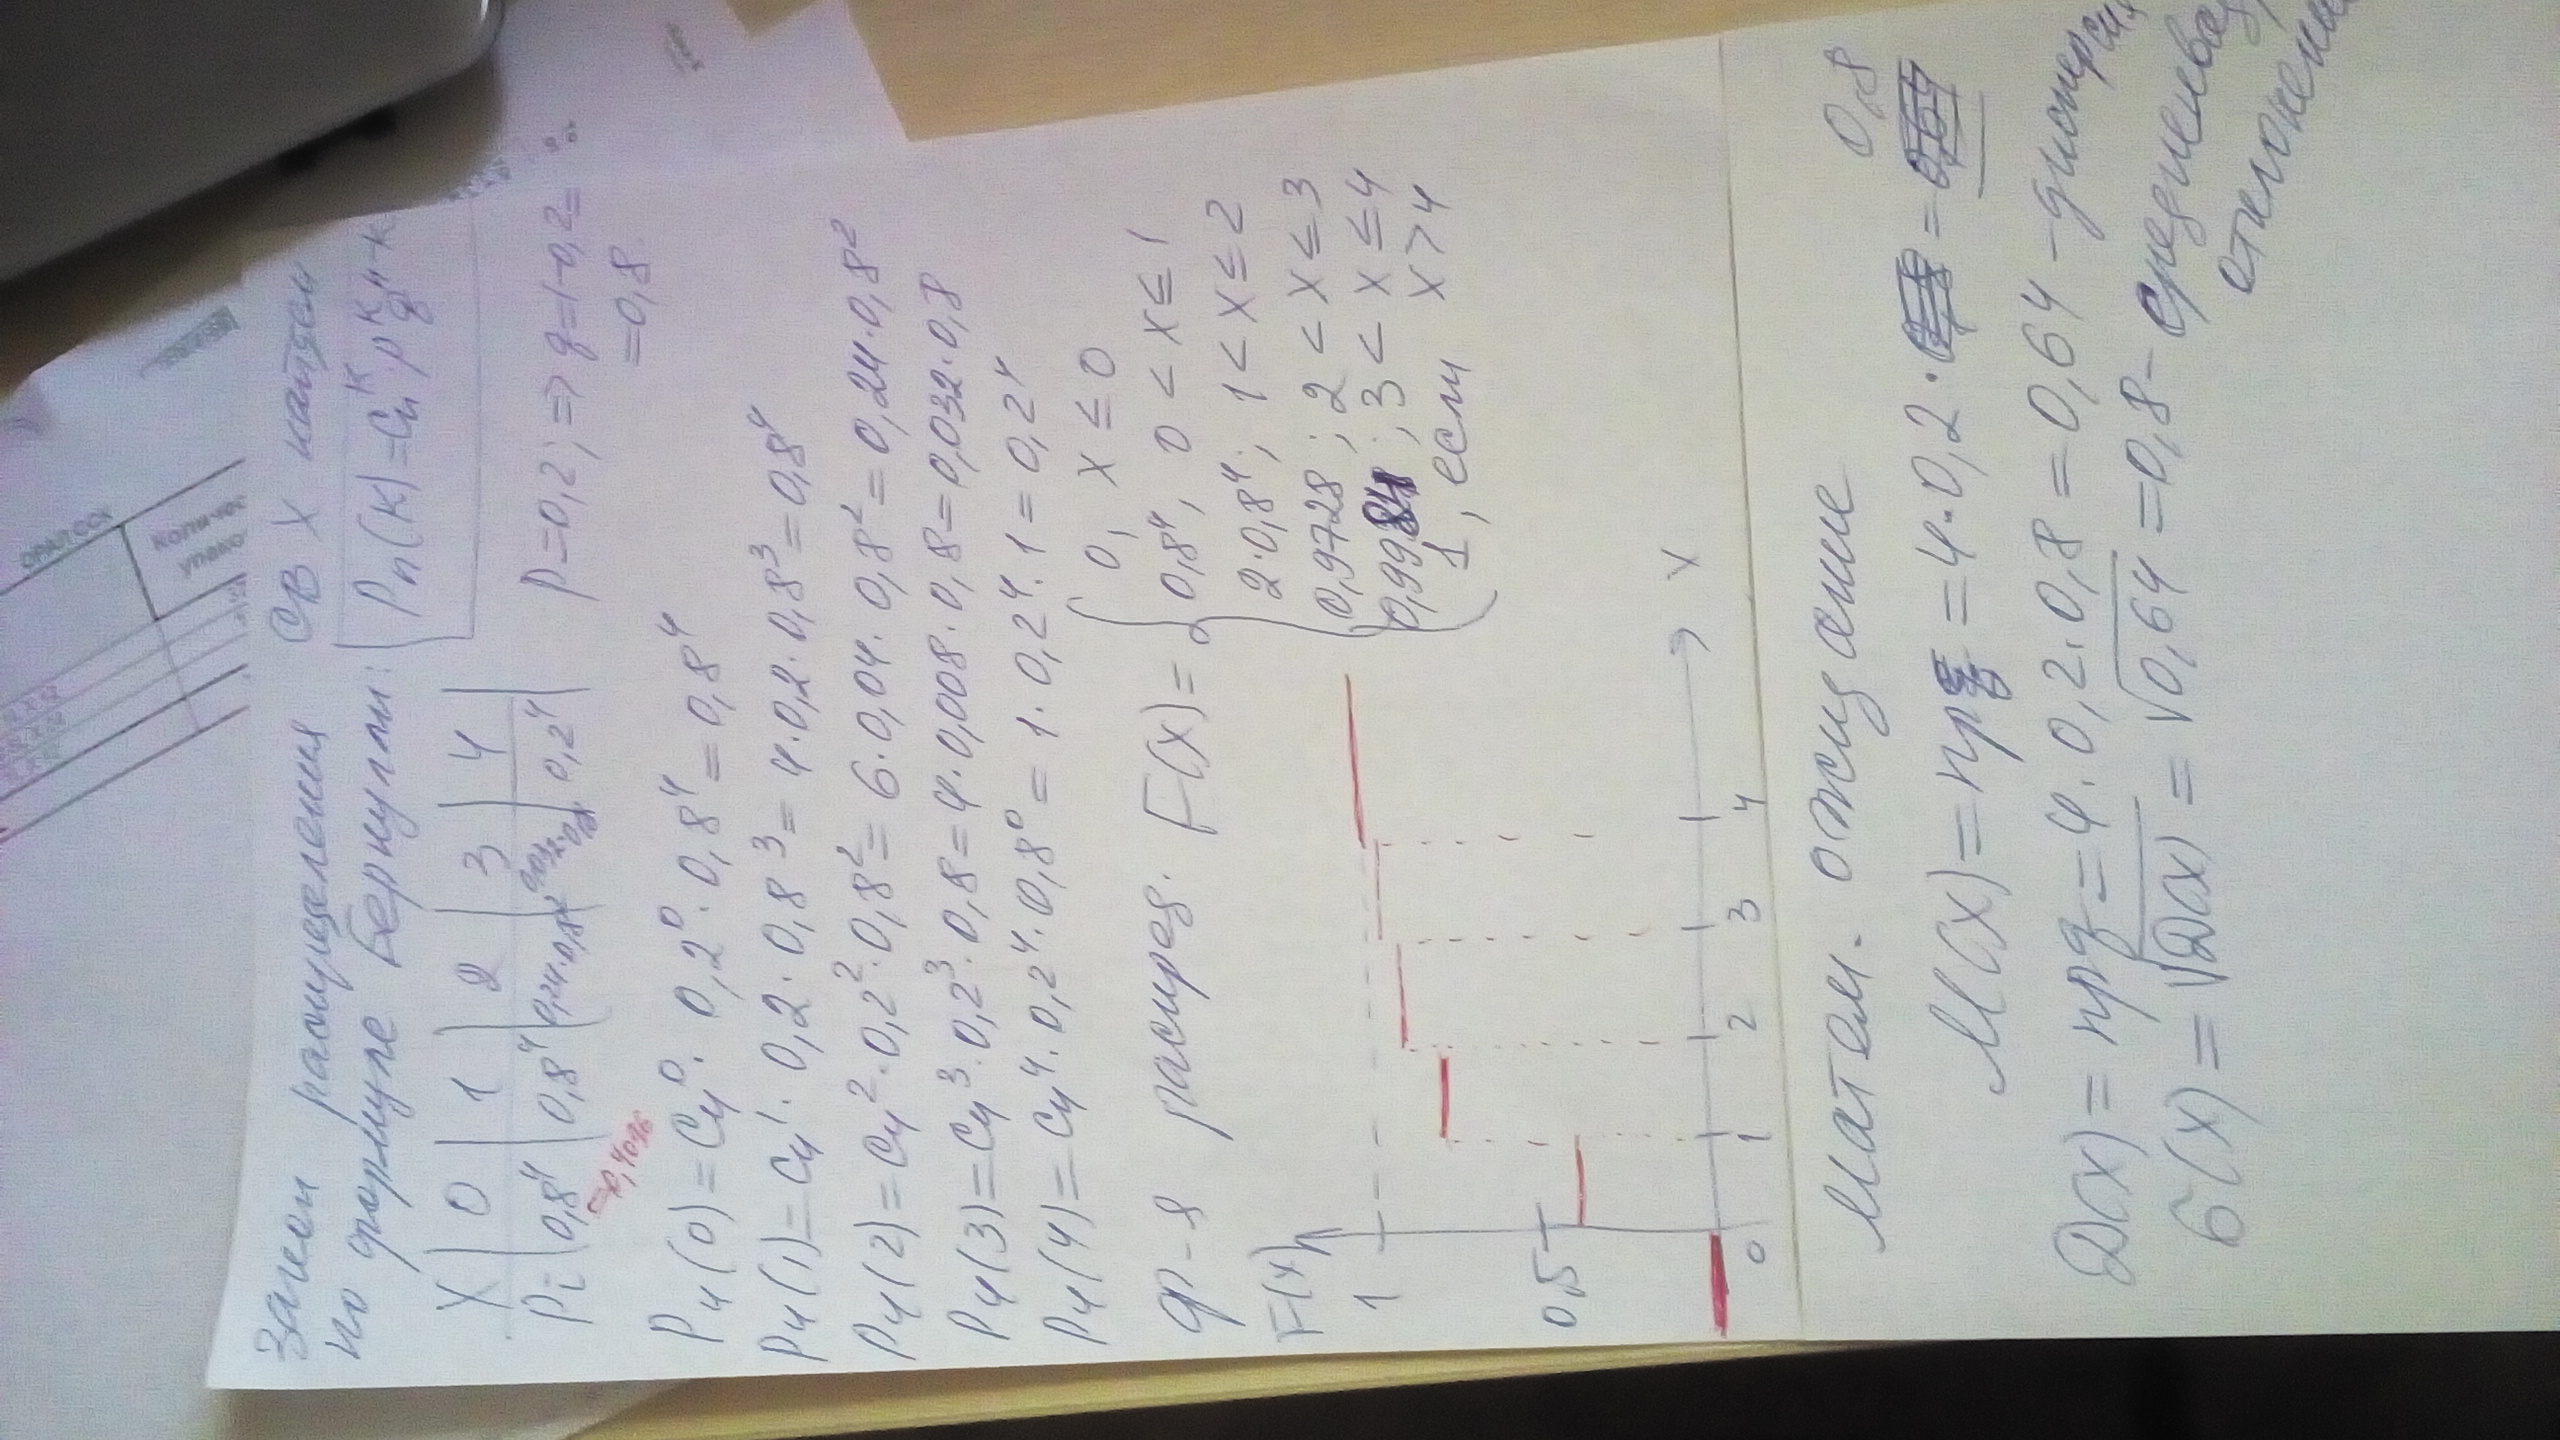 Закон распределения СВ X найдём
по формуле Бернулли: Pn(k) = Cn^k · p^k q^n-k
X | 0 | 1 | 2 | 3 | 4
Pi | 0,8⁴ | 0,8⁴ | 0,24·0,8² | 0,032·0,8 | 0,2⁴
=0,4096
p=0,2; => q=1-0,2=
=0,8.
P4(0) = C4⁰ · 0,2⁰ · 0,8⁴ = 0,8⁴
P4(1) = C4¹ · 0,2 · 0,8³ = 4·0,2·0,8³ = 0,8⁴
P4(2) = C4² · 0,2² · 0,8² = 6·0,04·0,8² = 0,24·0,8²
P4(3) = C4³ · 0,2³ · 0,8 = 4·0,008·0,8 = 0,032·0,8
P4(4) = C4⁴ · 0,2⁴ · 0,8⁰ = 1·0,2⁴·1 = 0,2⁴
ф-я распред. F(x) = {
0, x ≤ 0
0,8⁴, 0 < x ≤ 1
2·0,8⁴; 1 < x ≤ 2
0,9728; 2 < x ≤ 3
0,9984; 3 < x ≤ 4
1, если x > 4
F(x)
1
0,5
0 1 2 3 4 X
Матем. ожидание
M(X) = np = 4·0,2 = 0,8
D(X) = npq = 4·0,2·0,8 = 0,64 - дисперсия
б(X) = √D(X) = √0,64 = 0,8 -
ОРАЛ ССК